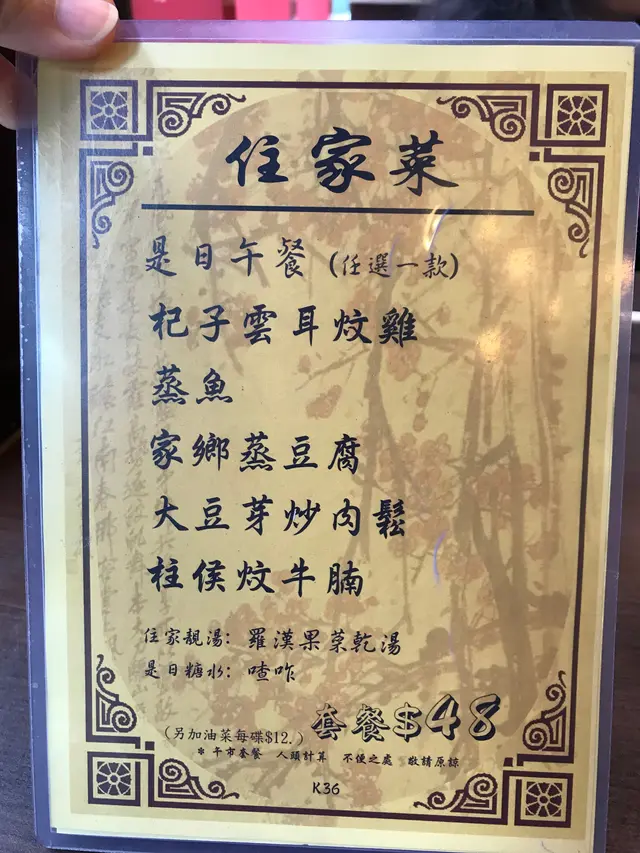 住家菜
是日午餐 (任選一款)
杞子雲耳炆雞
蒸魚
家鄉蒸豆腐
大豆芽炒肉鬆
柱侯炆牛腩
住家靚湯: 羅漢果菜乾湯
是日糖水: 喳咋
套餐$48
(另加油菜每碟$12.)
* 午市套餐 人頭計算 不便之處 敬請原諒
K36